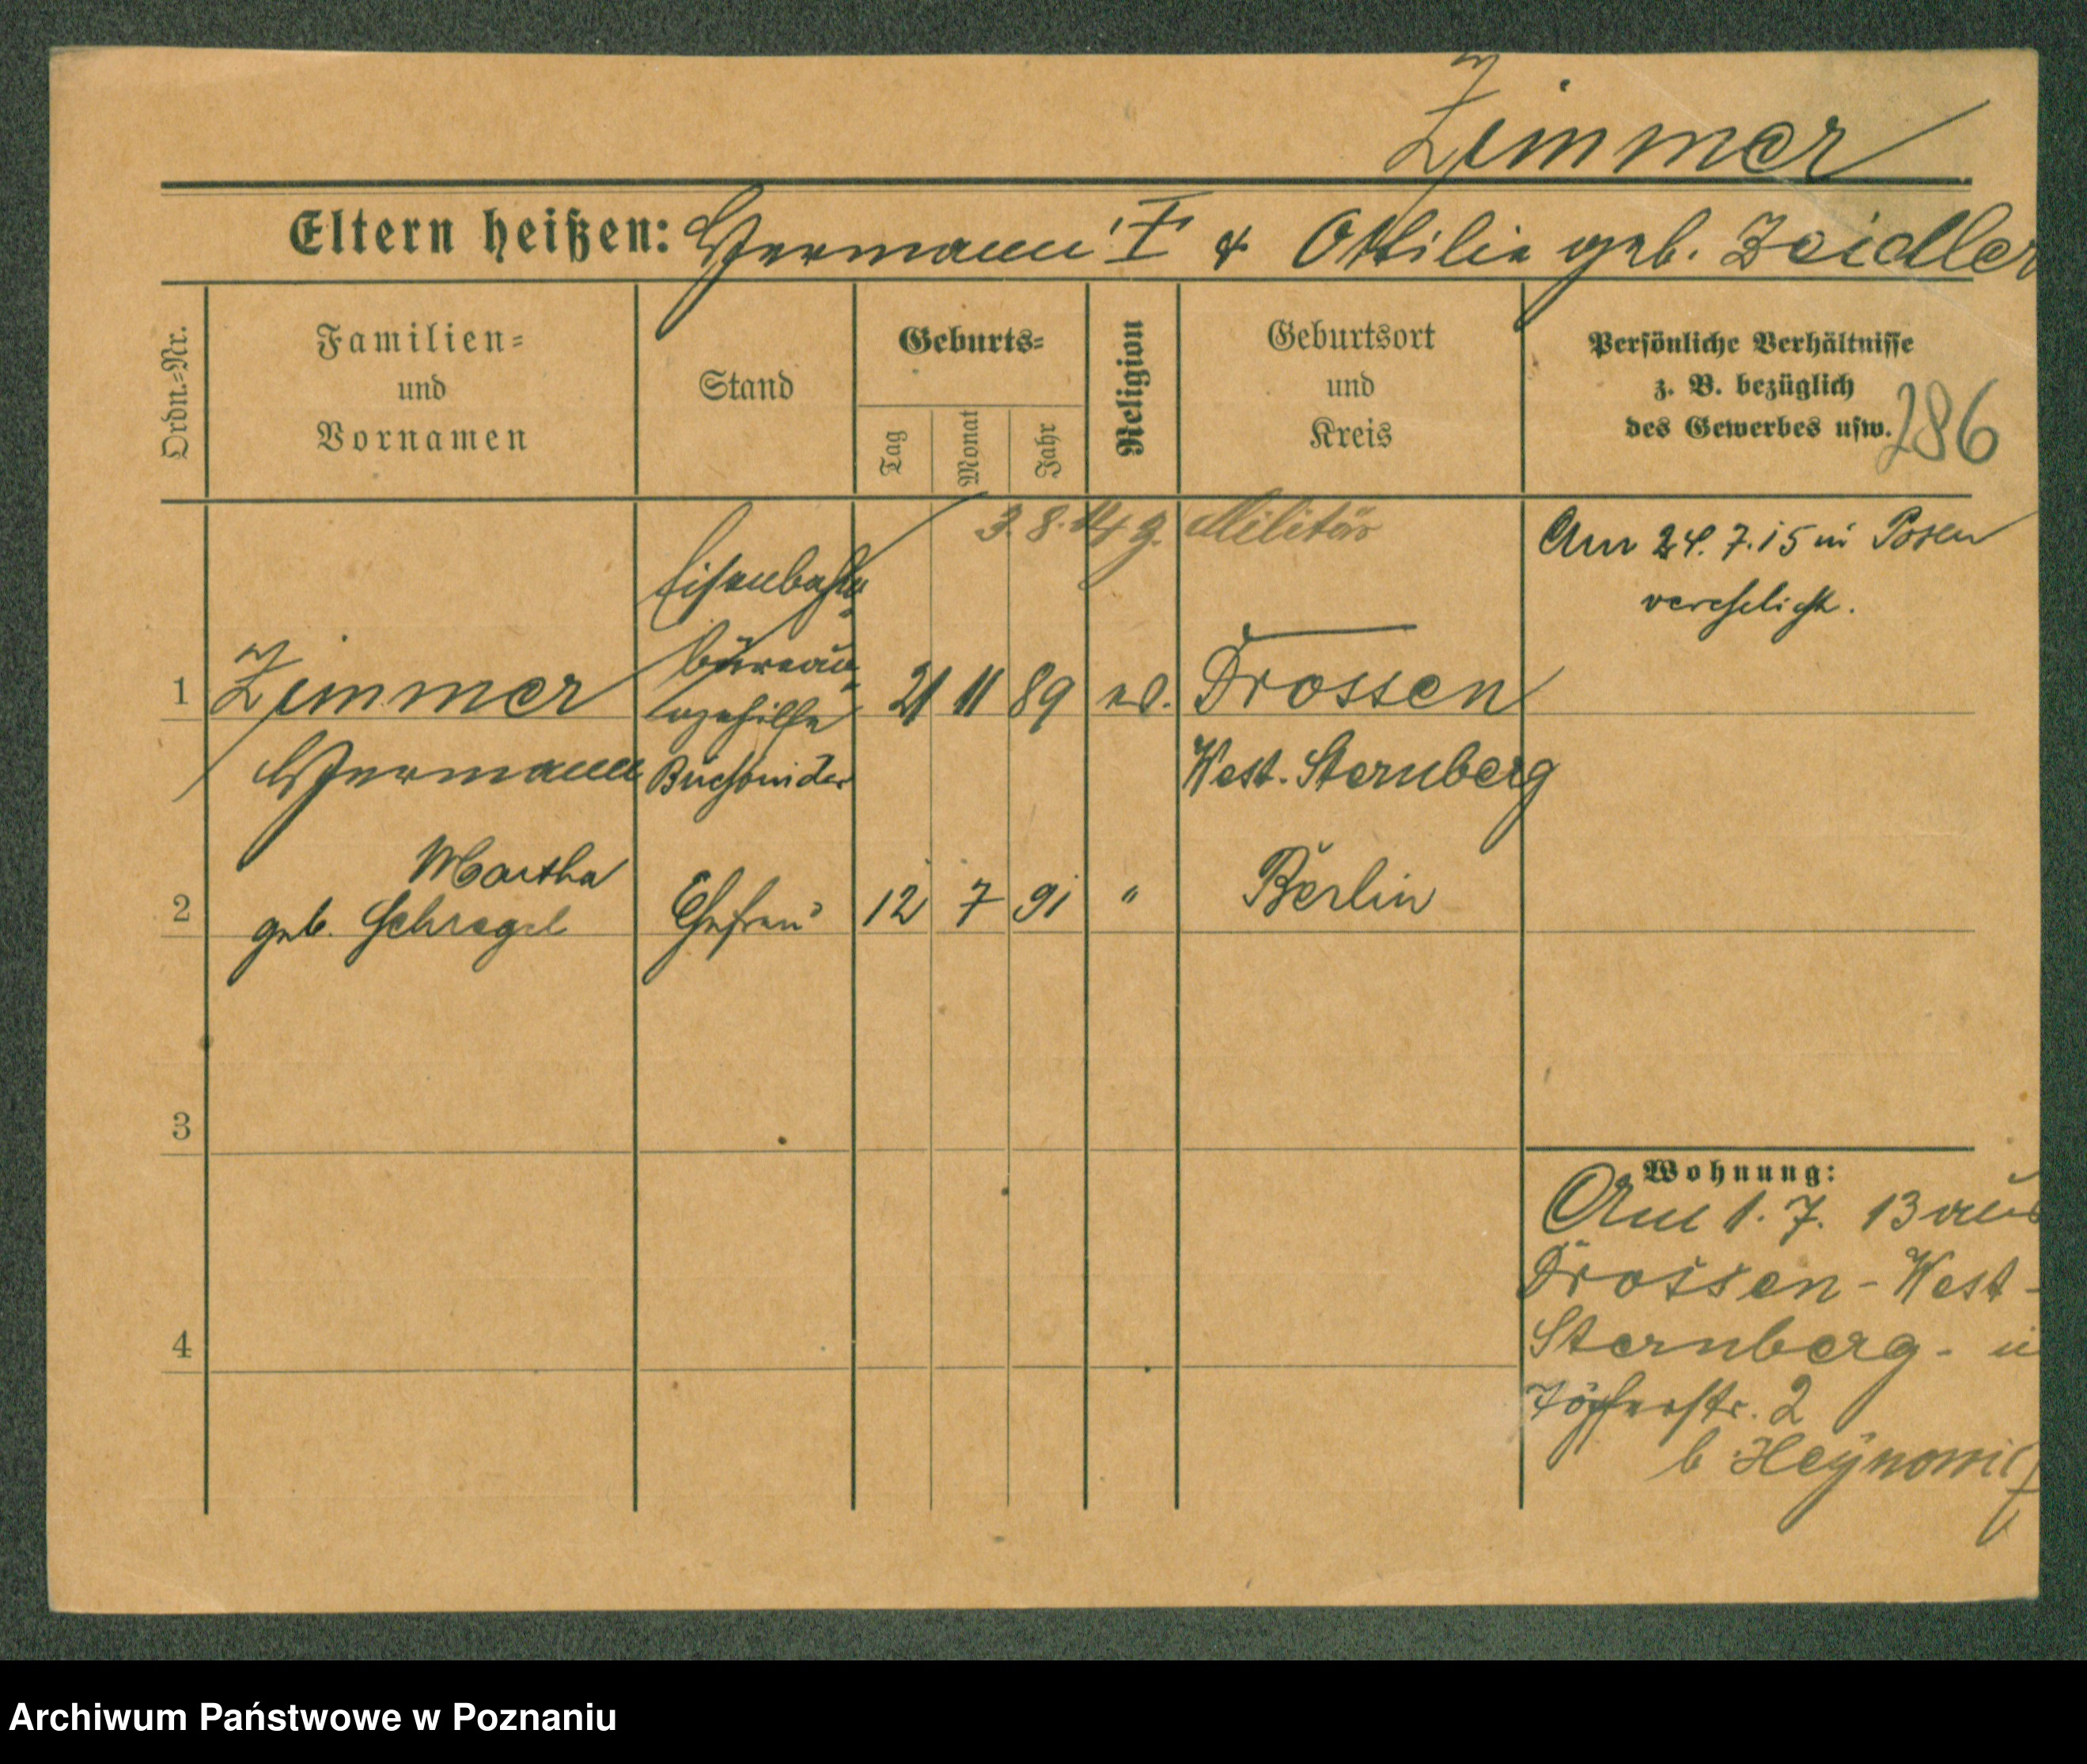 Zimmer
Eltern heißen: Hermann I & Ottilie geb. Zeidler
Ordn.-Nr.
Familien-
und
Vornamen
Stand
Geburts-
Tag
Monat
Jahr
Religion
Geburtsort
und
Kreis
Persönliche Verhältnisse
z. B. bezüglich
des Gewerbes usw.
286
3.8.14 z. Militär
Am 24.7.15 in Posen
verehelicht.
Eisenbahn-
büreau-
gehilfe
1 Zimmer 21 11 89 ev. Drossen
Hermann Buchbinder West. Sternberg
Martha
2 geb. Schragel Ehefrau 12 7 91 " Berlin
3
4
Wohnung:
Am 1. 7. 13 aus
Drossen - West-
Sternberg -
Töpferstr. 2
b